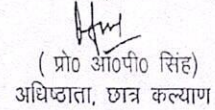 ( प्रो० ओ०पी० सिंह)
अधिष्ठाता, छात्र कल्याण